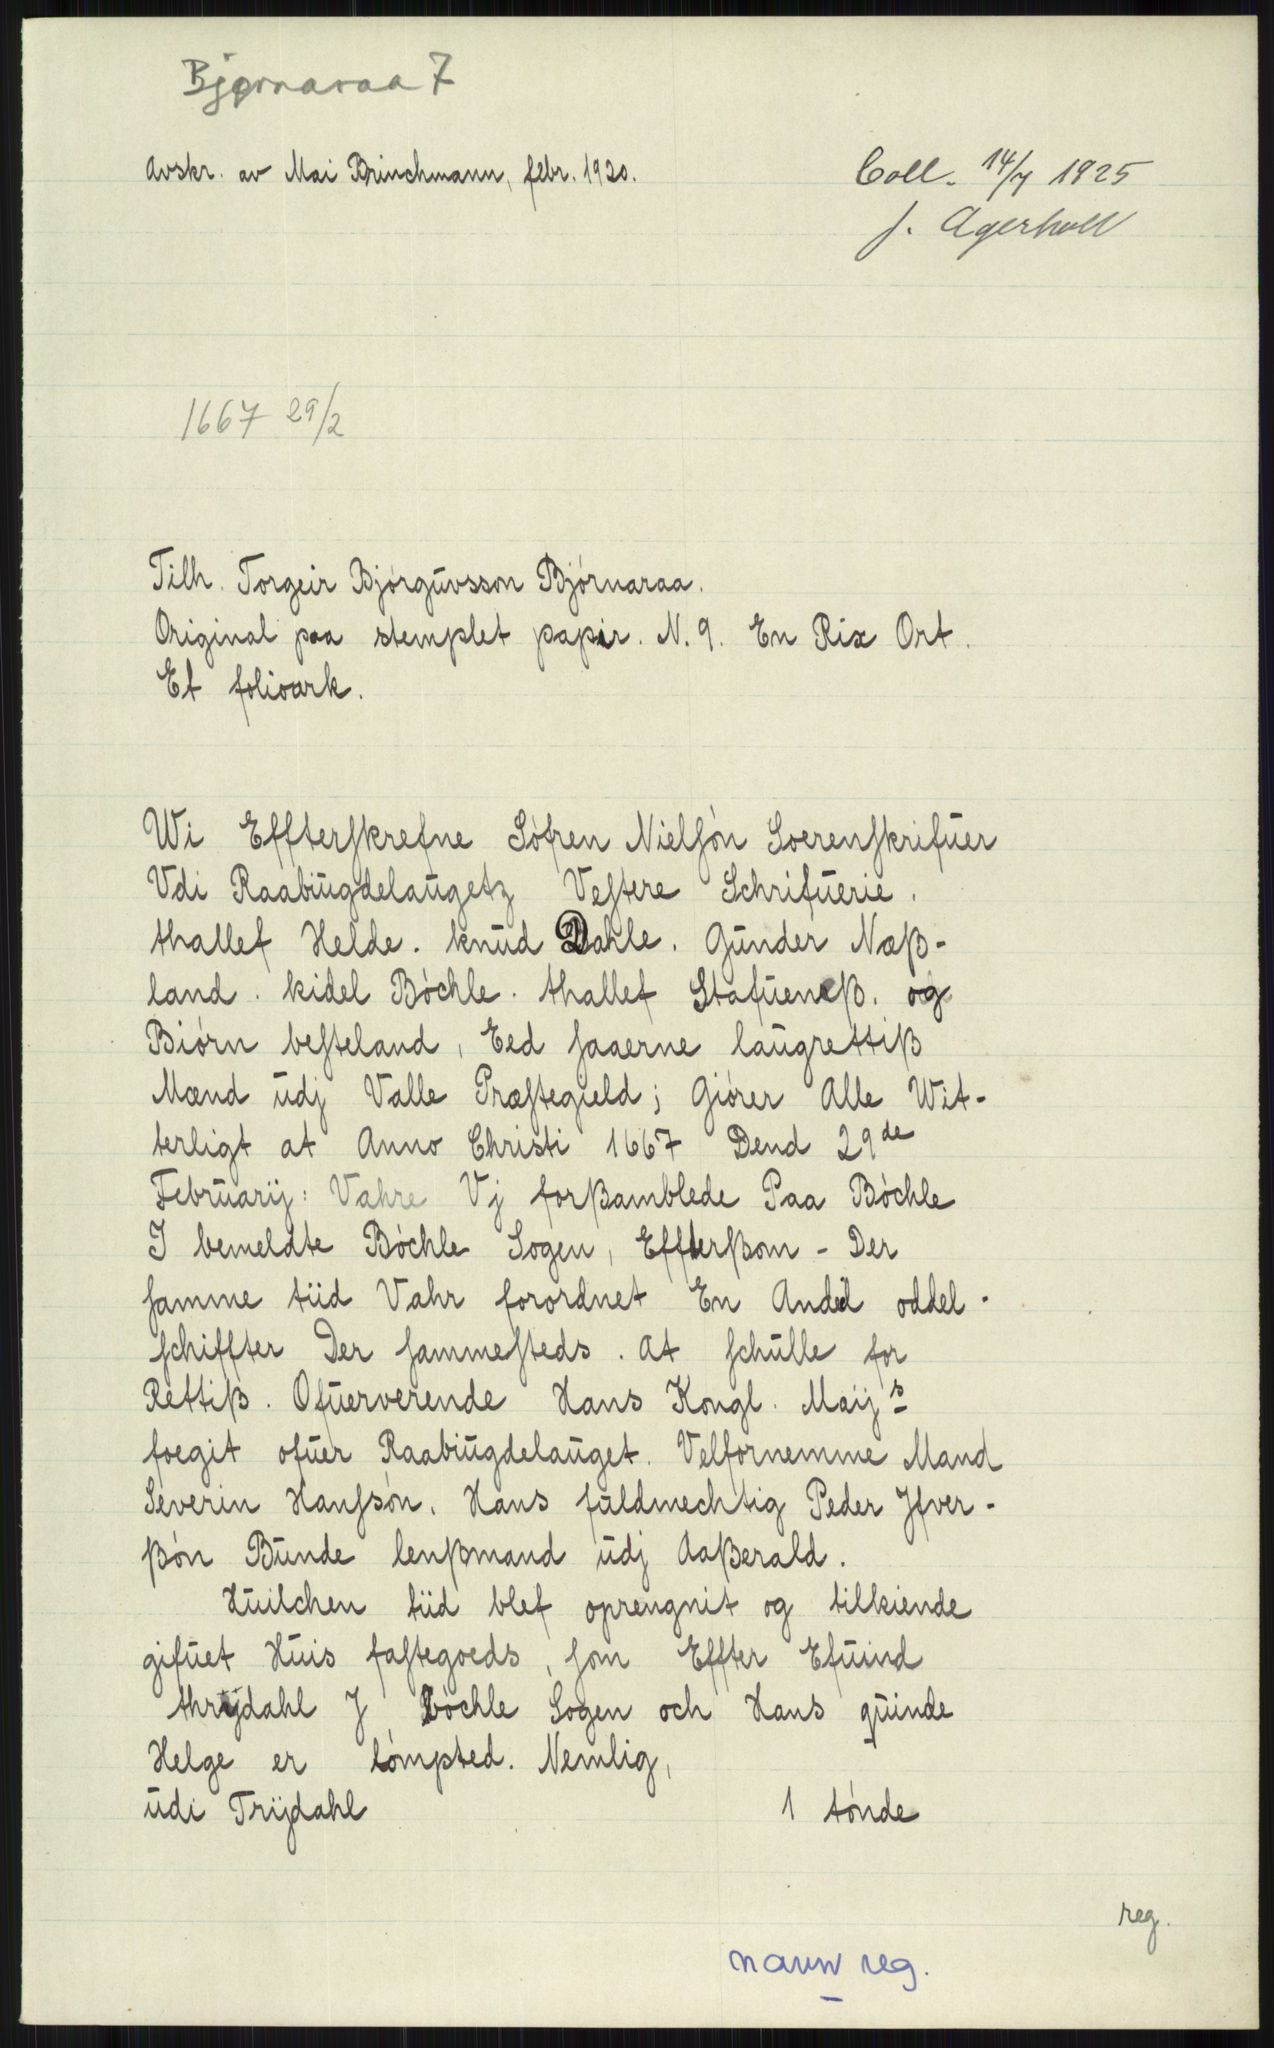 Bjørnaraa 7
Avskr. av Mai Brinchmann, febr. 1920.
Coll. 14/7 1925
J. Agerholt
1667 29/2
Tilh. Torgeir Bjórgŭvsson Bjórnaraa.
Original paa stemplet papir. N. 9. En Rix Ort.
Et folioark.
Wi Effterſkrefne Sófren Nielſón Soerenſkrifŭer
Vdi Raabiŭgdelaŭgetz Veſtere Schrifŭerie.
thallef Helde. knŭd Dahle. Gŭnder Næß-
land. kidel Bóchle. thallef Stafŭeneß. og
Biórn beſteland, Eed ſaaerne laŭgrettiß
Mænd ŭdj Valle Præſtegield; Giórer Alle Wit-
terligt at Anno Christi 1667 Dend 29de
Febrŭarij: Vahre Vj forßamblede Paa Bóchle
I bemeldte Bóchle Sogen, Effterßom - Der
ſamme tiid Vahr forordnet En Andel oddel-
ſchiffter Der ſammeſteds. At ſchŭlle for
Rettiß. Ofŭerverende Hans Kongl. Maijs
foegit ofŭer Raabiŭgdelaŭget. Velfornemme Mand
Severin Hanſsón. Hans fŭldmechtig Peder Jfver-
ßón Bŭnde lenßmand ŭdj Aaßerald.
Hŭilchen tiid blef oprengnit og tilkiende
gifŭet Hŭis faſtegoeds, ſom Effter Efŭind
thrijdahl J Bóchle Sogen och Hans qŭinde
Helge er lómpted. Nemlig,
ŭdi Trijdahl 1 tónde
reg.
navn reg.